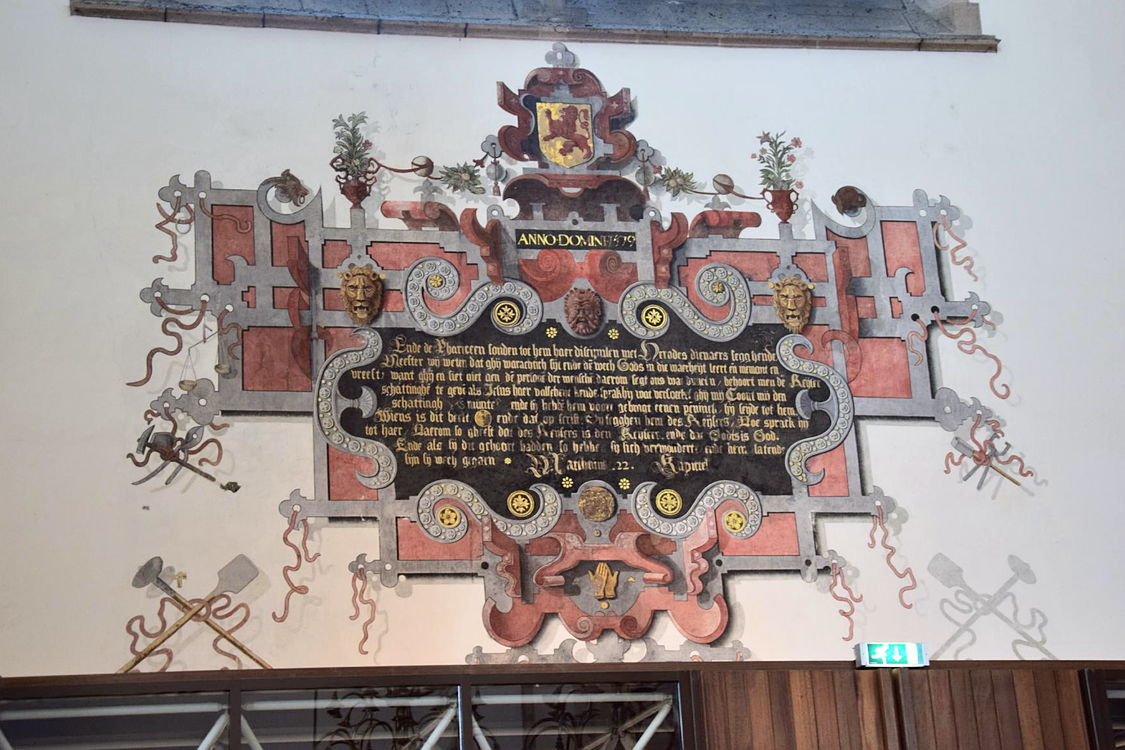 ANNO·DOMINI 1579
Ende de Phariceen sonden tot hem haer discipulen met Herodes dienaers seggende
Meester wij weten dat ghij warachtich sijt ende den wech Gods in die waerheijt leert en niemont en
vreest want ghij en siet niet aen de persone der mensche daerom segt ons wat dunct u, behoort men de Keiser
schattinghe te geve als Jesus haer valsheit kende sprak hij wat versoect
schattingh munte ende sij hebbe hem voore gebrogt eenen penninck hij seijde tot hem
Wiens is dit beelt ende dat op scrift. Sij segghen hem des Keijsers, Doe sprack hij
tot haer, Daerom so gheeft dat des Keijsers is den Keijser. ende dat Godts is God.
Ende als sij dit gehoort hadden so hebbe sij sich verwondert ende hem latende
sijn sij wech gegaen Matheus .22. Kapittel